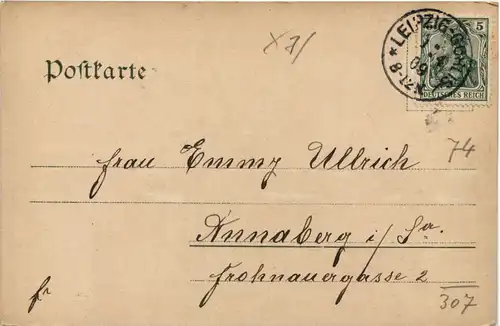 X 7/
5
* LEIPZIG-GOHLIS
09
8-12 V
DEUTSCHES REICH
Postkarte
74
Frau Emmy Ullrich
Annaberg i/Sa.
Frohnauergasse 2
fr
307